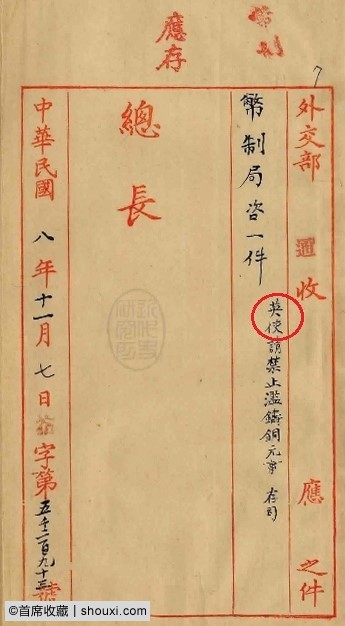 幣制
應存
7
外交部 通 收 應 之件
幣制局咨一件
英使請禁止濫鑄銅元事 存司
總長
中華民國 八 年 十一 月 七 日 字第 五千二百九十三 號
©首席收藏 | shouxi.com